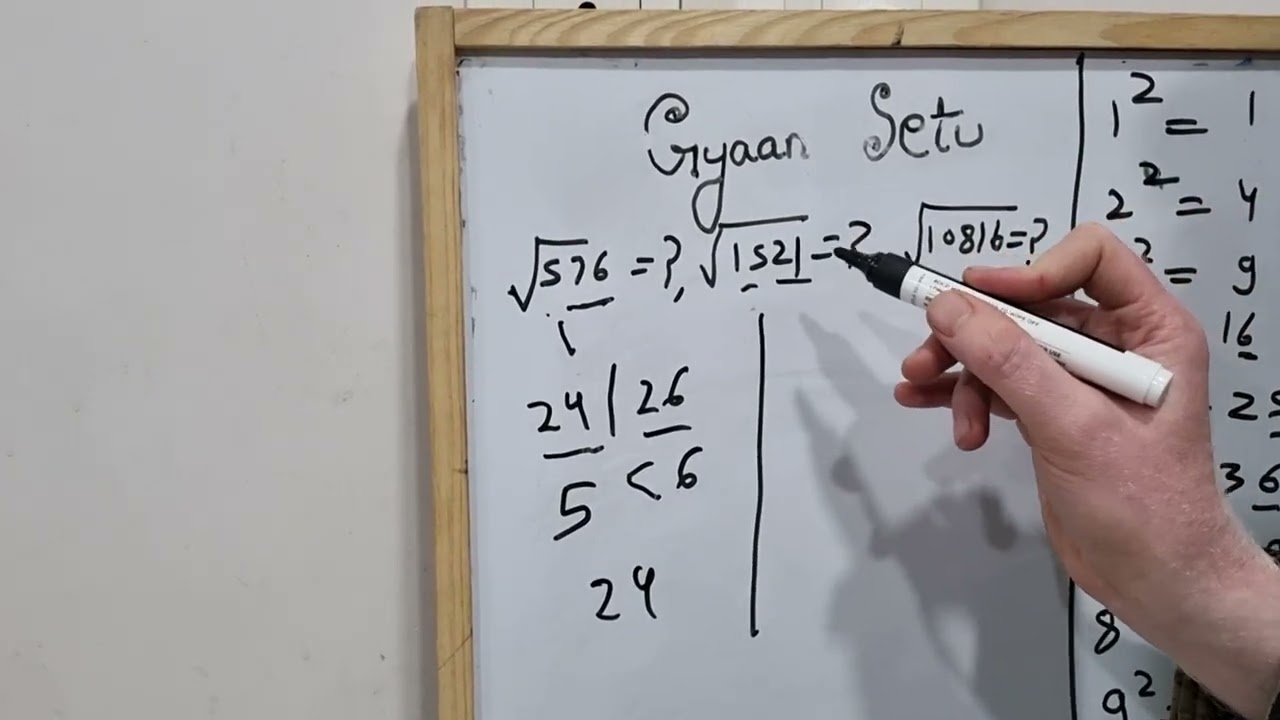 Gyaan Setu
√576 = ?, √1521 = ? √10816 = ?
24 | 26
5 < 6
24
1² = 1
2² = 4
² = 9
16
25
36
8
9²